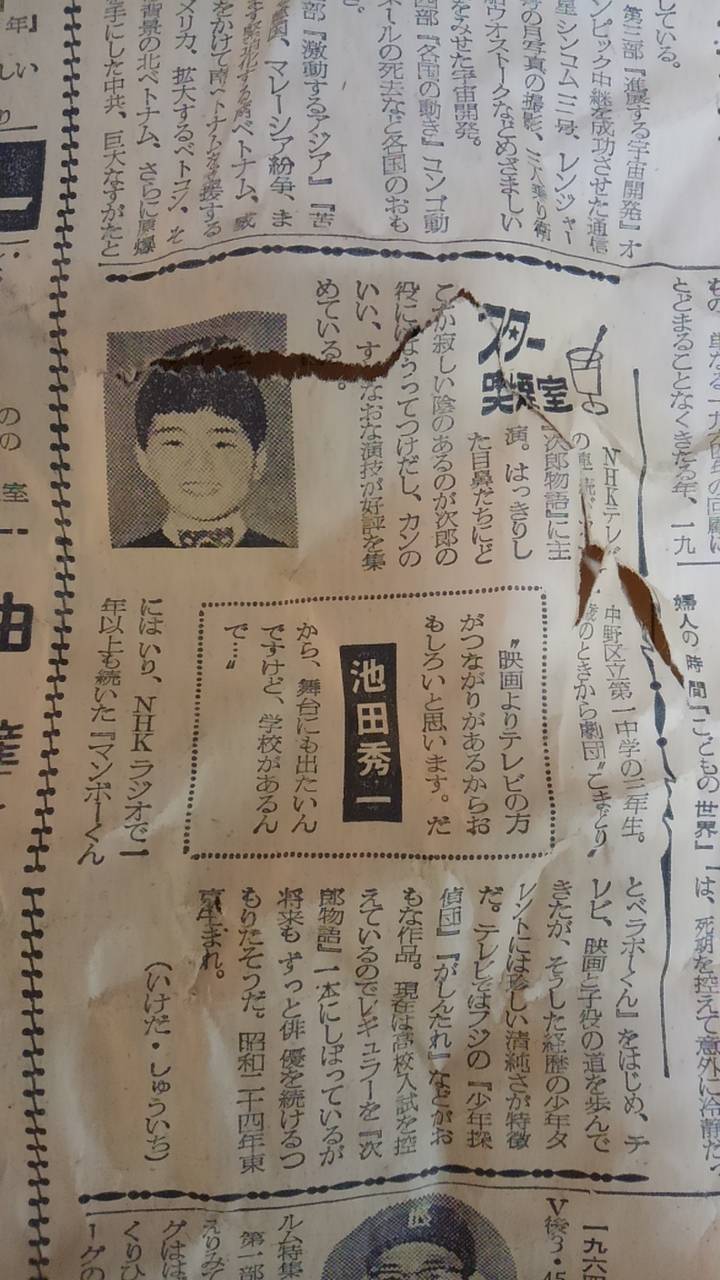 している。
第三部『進展する宇宙開発』オ
ンピック中継を成功させた通信
星シンコム三号、レンジャー
号の月写真の撮影、三人乗り衛
船ウオストークなどめざましい
をみせた宇宙開発。
四部『各国の動き』コンゴ動
ネールの死去など各国のおも
部『激動するアジア』『苦
マレーシア紛争、ま
ベトナム、
をかけて南ベトナムを
メリカ、拡大するベトコン、そ
背景の北ベトナム、さらに原爆
手にした中共、巨大なすがたと
スター
喫茶室
NHKテレ
『次郎物語』に主
演。はっきりし
た目鼻だちにど
こか寂しい陰のあるのが次郎の
役にはうってつけだし、カンの
いい、すなおな演技が好評を集
めている。
中野区立第一中学の三年生。
のときから劇団"こまどり"
にはいり、NHKラジオで一
年以上も続いた『マンボーくん
とベラボーくん』をはじめ、テ
レビ、映画と子役の道を歩んで
きたが、そうした経歴の少年タ
レントには珍しい清純さが特徴
だ。テレビではフジの『少年探
偵団』『がしんたれ』などがお
もな作品。現在は高校入試を控
えているのでレギュラーを『次
郎物語』一本にしぼっているが
将来もずっと俳優を続けるつ
もりだそうだ。昭和二十四年東
京生まれ。
(いけだ・しゅういち)
"映画よりテレビの方
がつながりがあるからお
もしろいと思います。だ
池田秀一
から、舞台にも出たいん
ですけど、学校があるん
で…"
とどまることなくきたる年、一九
婦人の時間『こどもの世界』は、
V後3・45
ルム特集
第一部
えりみて
グはは
くりひ
ーグの